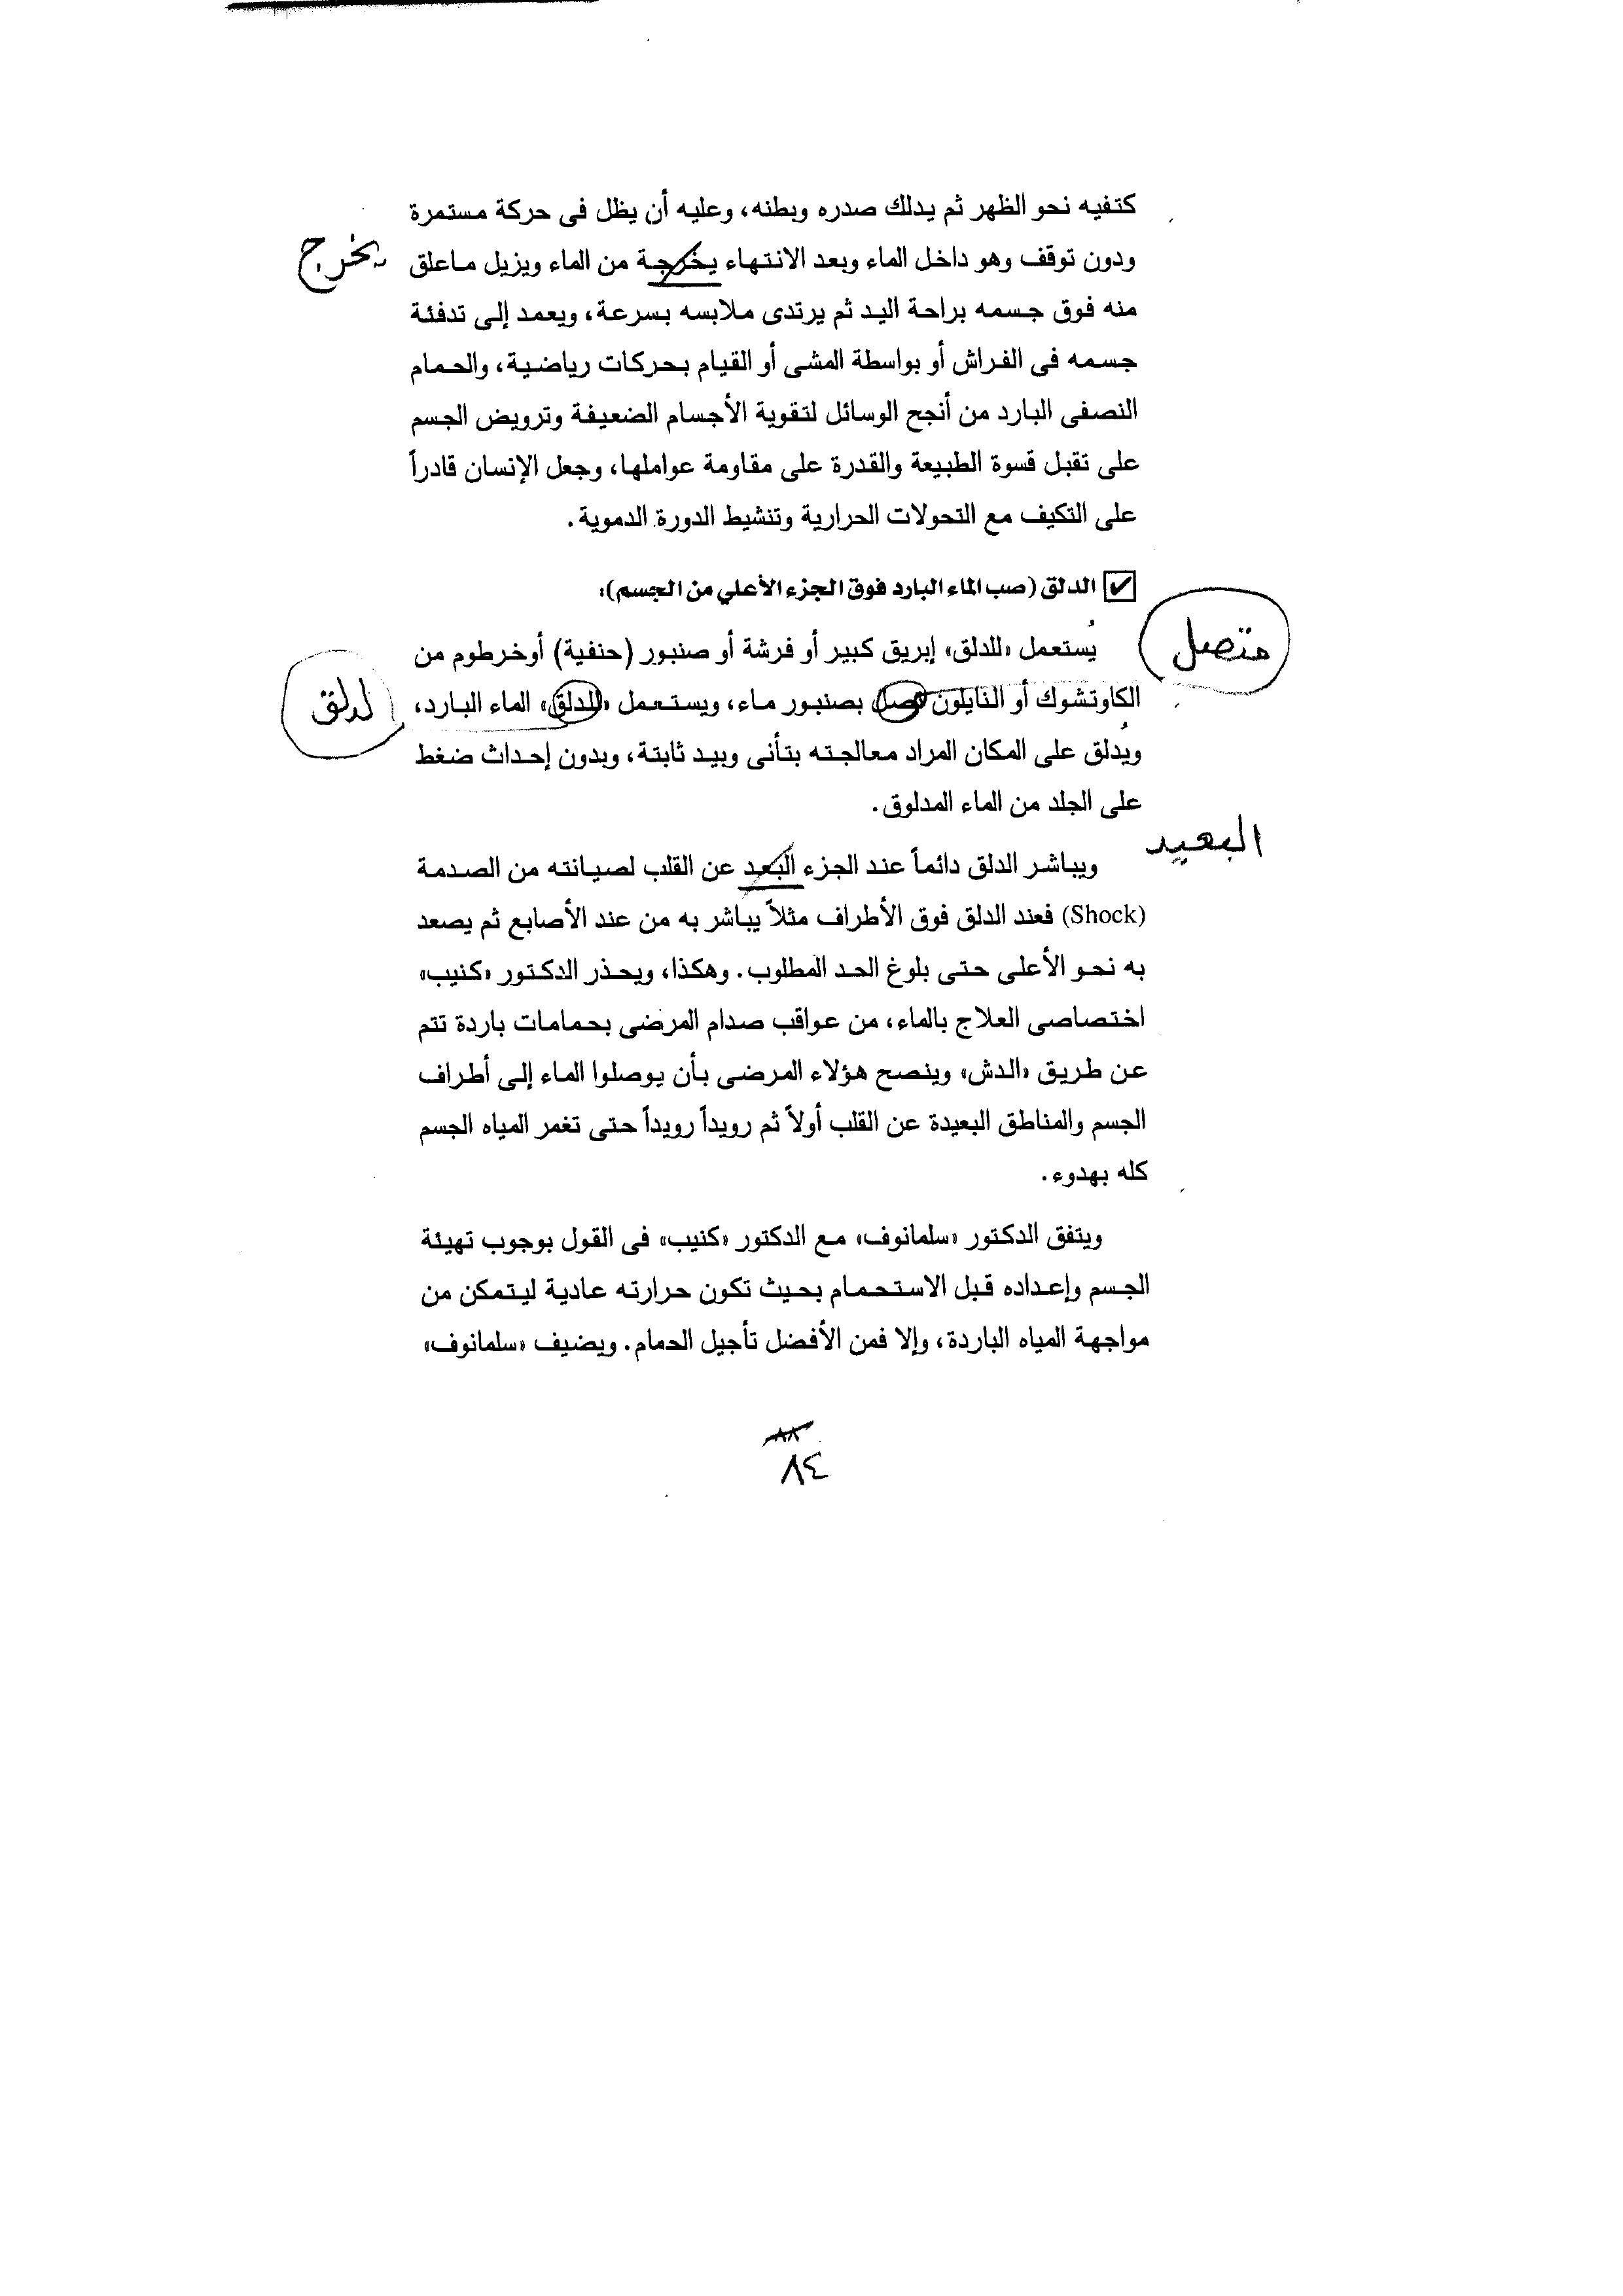 كتفيه نحو الظهر ثم يدلك صدره وبطنه، وعليه أن يظل فى حركة مستمرة
ودون توقف وهو داخل الماء وبعد الانتهاء يخرجة من الماء ويزيل ماعلق
يخرج
منه فوق جسمه براحة اليد ثم يرتدى ملابسه بسرعة، ويعمد إلى تدفئة
جسمه فى الفراش أو بواسطة المشى أو القيام بحركات رياضية، والحمام
النصفى البارد من أنجح الوسائل لتقوية الأجسام الضعيفة وترويض الجسم
على تقبل قسوة الطبيعة والقدرة على مقاومة عواملها، وجعل الإنسان قادراً
على التكيف مع التحولات الحرارية وتنشيط الدورة الدموية.
الدلق (صب الماء البارد فوق الجزء الأعلي من الجسم):
متصل
يُستعمل «للدلق» إبريق كبير أو فرشة أو صنبور (حنفية) أوخرطوم من
الكاوتشوك أو النايلون بصنبور ماء، ويستعمل «للدلق» الماء البارد،
لدلق
ويُدلق على المكان المراد معالجته بتأنى وبيد ثابتة، وبدون إحداث ضغط
على الجلد من الماء المدلوق.
البعيد
ويباشر الدلق دائماً عند الجزء البعد عن القلب لصيانته من الصدمة
(Shock) فعند الدلق فوق الأطراف مثلاً يباشر به من عند الأصابع ثم يصعد
به نحو الأعلى حتى بلوغ الحد المطلوب. وهكذا، ويحذر الدكتور «كنيب»
اختصاصى العلاج بالماء، من عواقب صدام المرضى بحمامات باردة تتم
عن طريق «الدش» وينصح هؤلاء المرضى بأن يوصلوا الماء إلى أطراف
الجسم والمناطق البعيدة عن القلب أولاً ثم رويداً رويداً حتى تغمر المياه الجسم
كله بهدوء.
ويتفق الدكتور «سلمانوف» مع الدكتور «كنيب» فى القول بوجوب تهيئة
الجسم وإعداده قبل الاستحمام بحيث تكون حرارته عادية ليتمكن من
مواجهة المياه الباردة، وإلا فمن الأفضل تأجيل الحمام. ويضيف «سلمانوف»
٨٨
٨٤